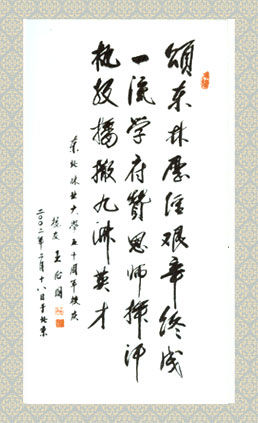 颂东林历经艰辛终成
一流学府赞恩师挥汗
执教播撒九洲英才
东北林业大学五十周年校庆
校友 王
二〇〇二年六月十八日于北京